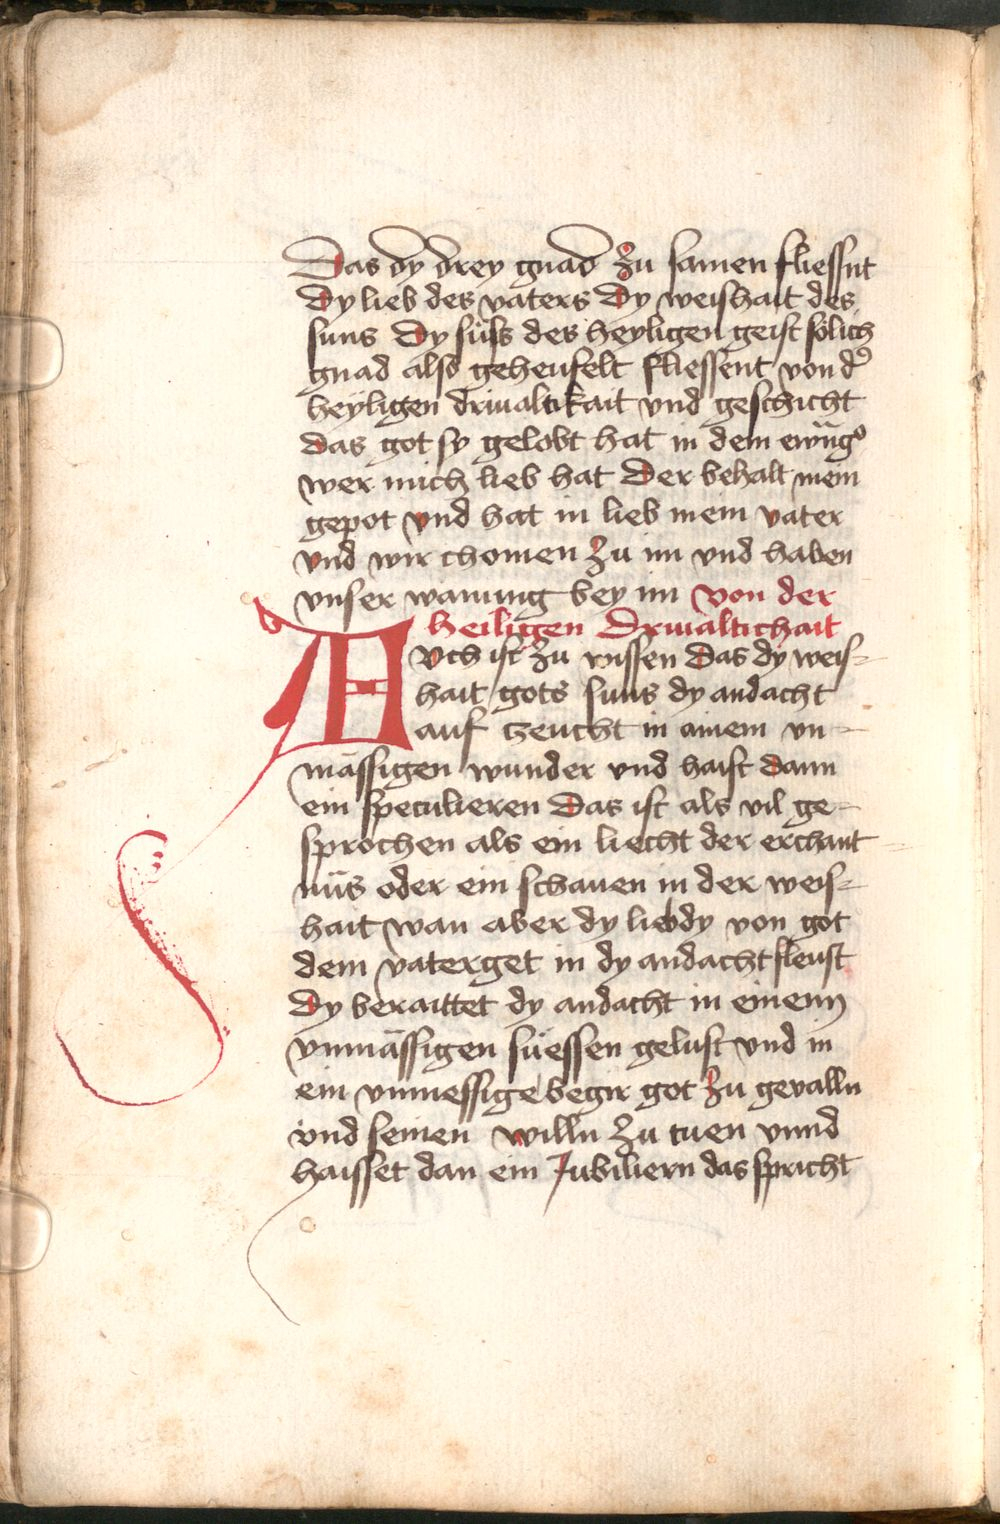 Das dy drey gnad zu samen fliessnt
Dy lieb des vaters Dy weishait des
suns Dy süss des heyligen geist sölich
gnad also geheufelt fliessent von d᾽
heyligen drivaltikait vnd geschicht
das got sy gelobt hat in dem ewūg᾽
wer mich lieb hat Der behalt mein
gepot vnd hat in lieb mein vater
vnd wir chomen zu im vnd haben
vnser wanung bey im von der
heiligen Drivaltichait
Auch ist zu wissen das dy weis-
hait gots suns dy andacht
auf zeucht in ainem vn-
mässigen wunder vnd haist dann
ein speculieren Das ist als vil ge-
sprochen als ein liecht der erchant-
nüs oder ein schauen in der weis-
hait wan aber dy lieb dy von got
dem vater get in dy andacht fleust
Dy beraittet dy andacht in einenn
vnmässigen süessen gelust vnd in
ein vnmessige begir got zu gevalln
vnd seinen willn zu tuen vnnd
haisset dan ein Jubiliern das spricht